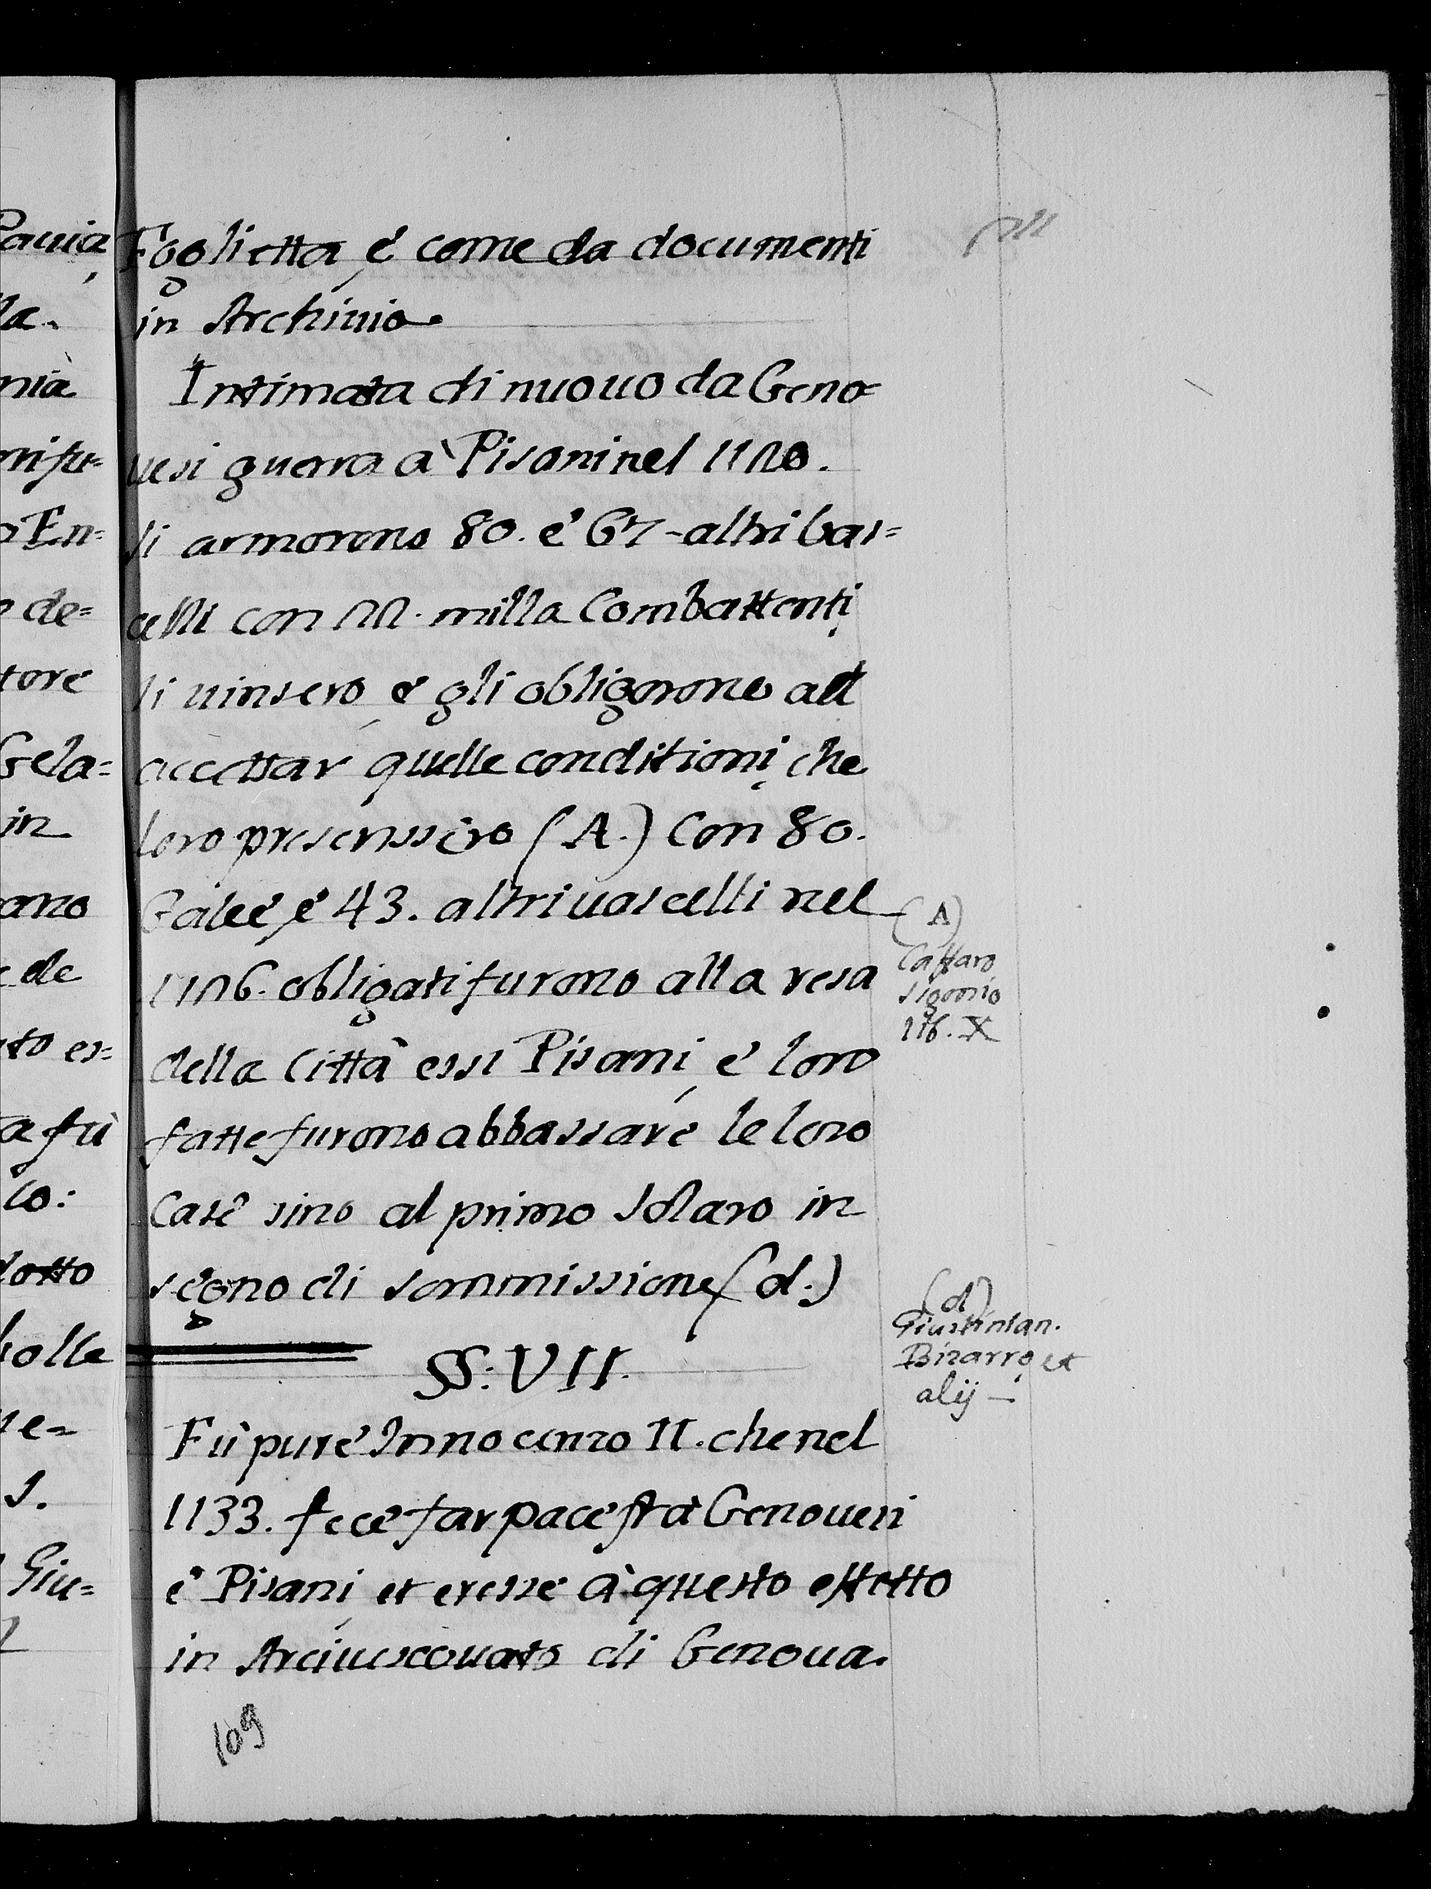 Foglietta, è come da documenti
in Archiuio.
Intimata di nuouo da Geno=
uesi guerra à Pisani nel 1120.
li armorono 80. è 67 - altri bas=
celli con 22. milla Combattenti,
li uinsero, è gli obligorono ad
accettar quelle conditioni, che
loro prescrissero (A.) Con 80.
Galeè, è 43. altri uascelli nel
1126. obligati furono alla resa
della Città essi Pisani, è loro
fatte furono abbassarè le loro
Casè sino al primo Solaro in
segno di sommissione (d.)
(A)
Caffaro,
Sigonio
lib. X
(d)
Giustinian.
Bizarro, et
alij -
SS: VII.
Fù purè Innocenzo II. che nel
1133. fecè far pacè frà Genouesi
è Pisani, et eresse à questo effetto
in Arciuescouato di Genoua.
109
Pauia,
la.
nià
En=
de=
tore
Gela=
in
ano
de
to es=
a fù
co:
dotto
bolle
ne=
s.
Giu=